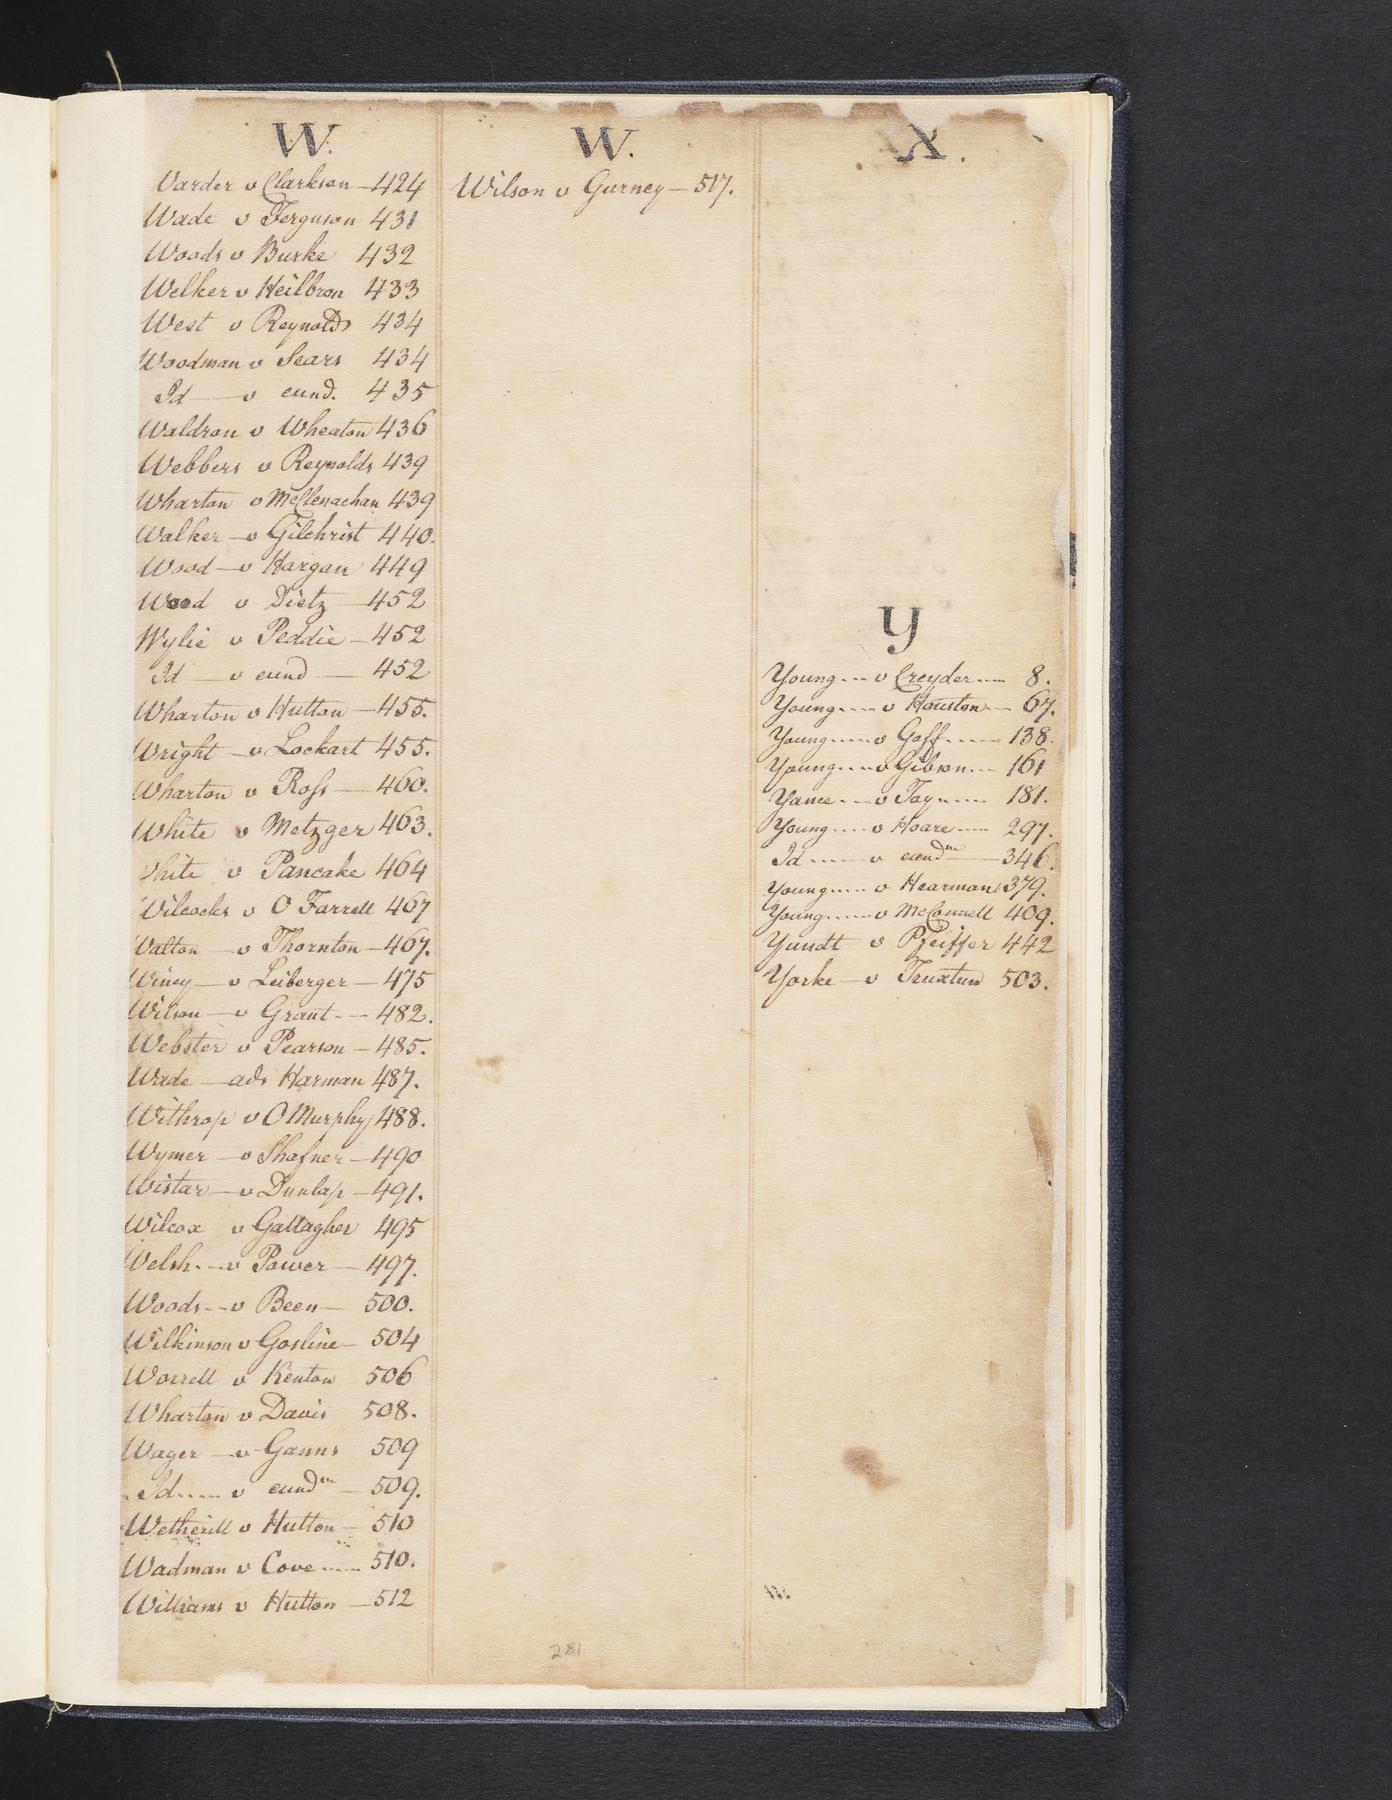 W.
Warder v Clarkson - 424
Wade v Ferguson 431
Woods v Burke 432
Welker v Heilbron 433
West v Reynolds 434
Woodman v Sears 434
Id - v eund. 435
Waldron v Wheaton 436
Webbers v Reynolds 439
Wharton v McClenachan 439
Walker - v Gilchrist 440.
Wood - v Hargan 449
Wood v Dietz - 452
Wylie v Peddie - 452
Id - v eund - 452
Wharton v Hutton - 455.
Wright - v Lockart 455.
Wharton v Ross - 460.
White v Metzger 463.
White v Pancake 464
Wilcocks v O Farrell 467
Walton - v Thornton - 467.
Winey - v Leiberger - 475
Wilson - v Grant - - 482.
Webster v Pearson - 485.
Wade - ads Harman 487.
Withrop v O Murphy 488.
Wymer - v Shafner - 490
Wistar - v Dunlap - 491.
Wilcox v Gallagher 495
Welsh. - - v Power - 497.
Woods - - v Been - 500.
Wilkinson v Gosline - 504
Worrell v Kenton 506
Wharton v Davis 508.
Wager - v - Ganns 509
Id ..... v eundm - 509.
Wetherill v Hutton - 510
Wadman v Cove ..... 510.
Williams v Hutton - 512
W.
Wilson v Gurney - 517.
281
X.
Y
Young .... v Creyder .... 8.
Young .... v Houston ... 67.
Young ..... v Goff ..... 138.
Young .... v Gibson ... 161
Yance ... v Toy ..... 181.
Young .... v Hoare .... 297.
Id ..... v eundm - 346.
Young ..... v Hearman 379.
Young ..... v McConnell 409.
Yundt v Pfeiffer 442
Yorke - v Truxtun 503.